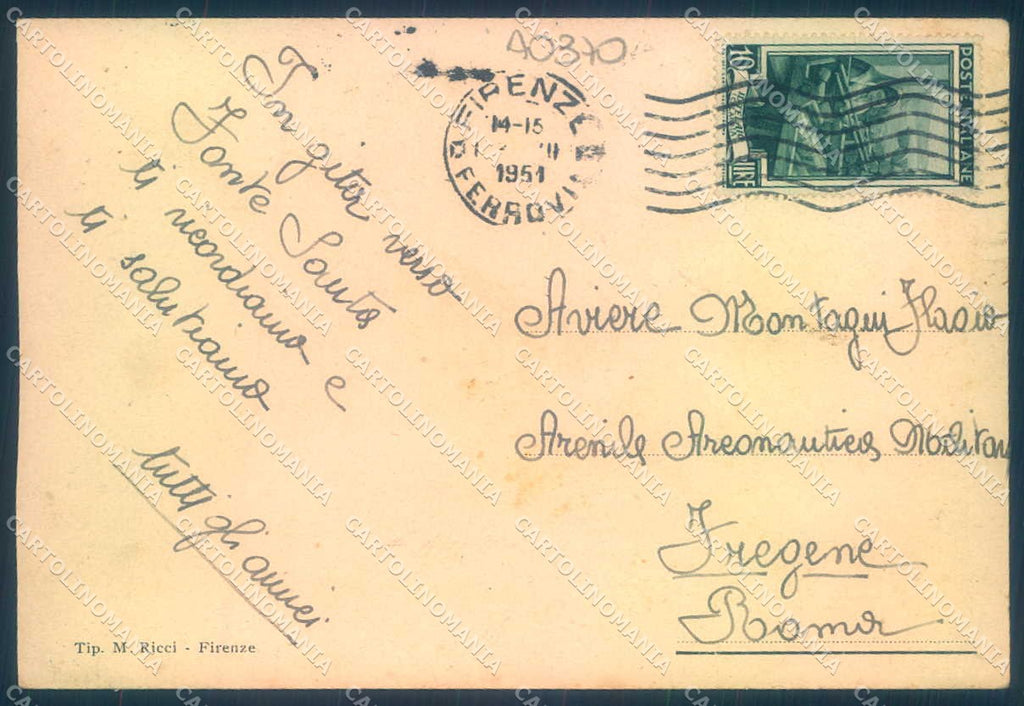 A0370
FIRENZE
14-15
1951
FERROVIA
10
LIRE
POSTE ITALIANE
In gita verso
Fonte Santa
ti ricordiamo e
ti salutiamo
tutti gli amici
Aviere Montagui Flavio
Aeronautica Militar
Fregene
Roma
Tip. M. Ricci - Firenze
CARTOLINOMANIA